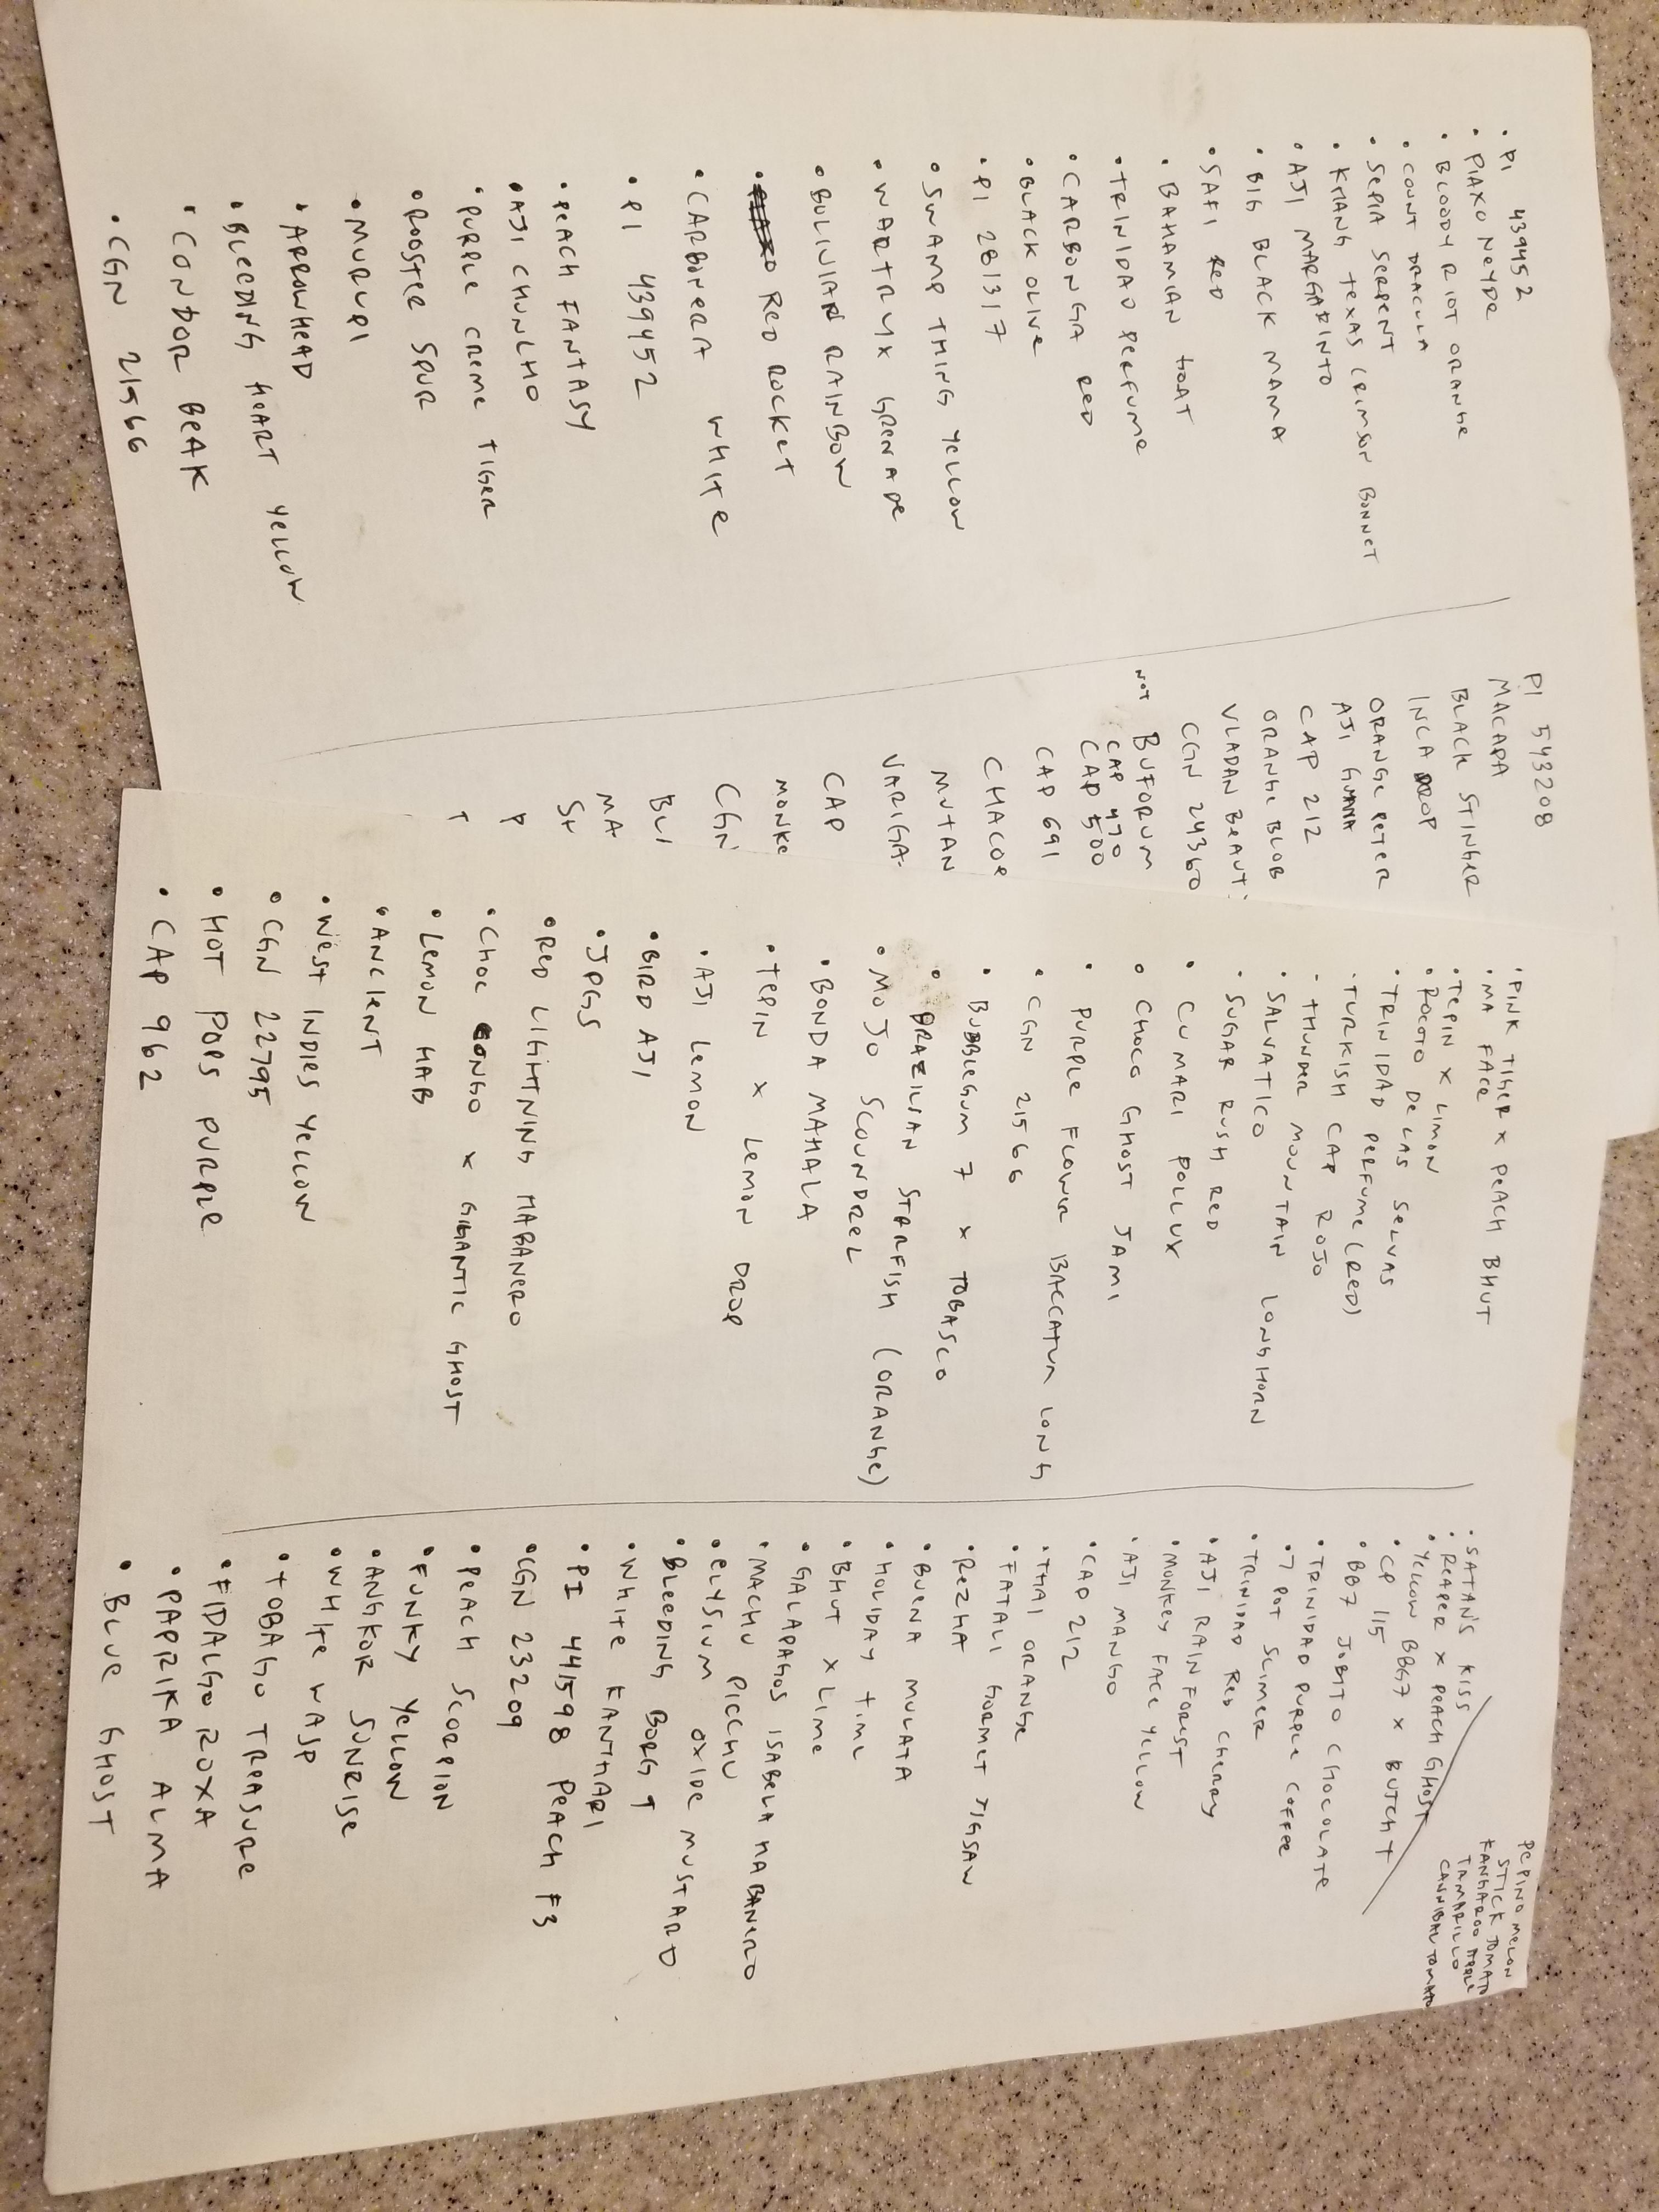 • PI 439452
• PIAXO NEYDR
• BLOODY RIOT ORANGE
• COUNT DRACULA
• SEPIA SERPENT
• KRANG TEXAS CRIMSON BONNET
• AJI MARGARINTO
• BIG BLACK MAMA
• SAFI RED
• BAHAMIAN GOAT
• TRINIDAD PERFUME
• CARBONGA RED
• BLACK OLIVE
• PI 281317
• SWAMP THING YELLOW
• WARTRYX GRENADE
• BOLIVIAN RAINBOW
• RED ROCKET
• CARBONERA WHITE
• PI 439452
• PEACH FANTASY
• AJI CHUNCHO
• PURPLE CREME TIGER
• ROOSTER SPUR
• MURUPI
• ARROWHEAD
• BLEEDING HEART YELLOW
• CONDOR BEAK
• CGN 21566
PI 543208
MACAPA
BLACK STINGER
INCA DROP
ORANGE PETER
AJI GUANA
CAP 212
ORANGE BLOB
VLADAN BEAUT
CGN 24360
NOT BUFORUM
CAP 470
CAP 500
CAP 691
CHACOE
MUTAN
VARIGA
CAP
MONKE
CGN
BLI
MA
SH
P
T
• PINK TIGER X PEACH BHUT
• MA FACE
• TEPIN X LIMON
• ROCOTO DE LAS SELVAS
• TRINIDAD PERFUME (RED)
• TURKISH CAP ROJO
• THUNDER MOUNTAIN LONGHORN
• SALVATICO
• SUGAR RUSH RED
• CUMARI POLLUX
• CHOCO GHOST JAMI
• PURPLE FLOWER BACCATUM LONG
• CGN 21566
• BUBBLEGUM 7 X TOBASCO
• BRAZILIAN STARFISH (ORANGE)
• MOJO SCOUNDREL
• BONDA MAHALA
• TEPIN X LEMON DROP
• AJI LEMON
• BIRD AJI
• JPGS
• RED LIGHTNING HABANERO
• CHOC CONGO X GIGANTIC GHOST
• LEMON HAB
• ANCIENT
• WEST INDIES YELLOW
• CGN 22795
• HOT POPS PURPLE
• CAP 962
PEPINO MELON
STICK TOMATO
KANGAROO APPLE
TAMARILLO
CANNIBAL TOMATO
• SATAN'S KISS
• REAPER X PEACH GHOST
• YELLOW BBG7 X BUTCH T
• CP 115
• BB7 JOBITO CHOCOLATE
• TRINIDAD PURPLE COFFEE
• 7 POT SLIMER
• TRINIDAD RED CHERRY
• AJI RAINFOREST
• MONKEY FACE YELLOW
• AJI MANGO
• CAP 212
• THAI ORANGE
• FATALI GORMET JIGSAW
• REZHA
• BUENA MULATA
• HOLIDAY TIME
• BHUT X LIME
• GALAPAGOS ISABELA HABANERO
• MACHU PICCHU
• ELYSIUM OXIDE MUSTARD
• BLEEDING BORG 9
• WHITE KANTHARI
• PI 441598 PEACH F3
• CGN 23209
• PEACH SCORPION
• FUNKY YELLOW
• ANGKOR SUNRISE
• WHITE WASP
• TOBAGO TREASURE
• FIDALGO ROXA
• PAPRIKA ALMA
• BLUE GHOST